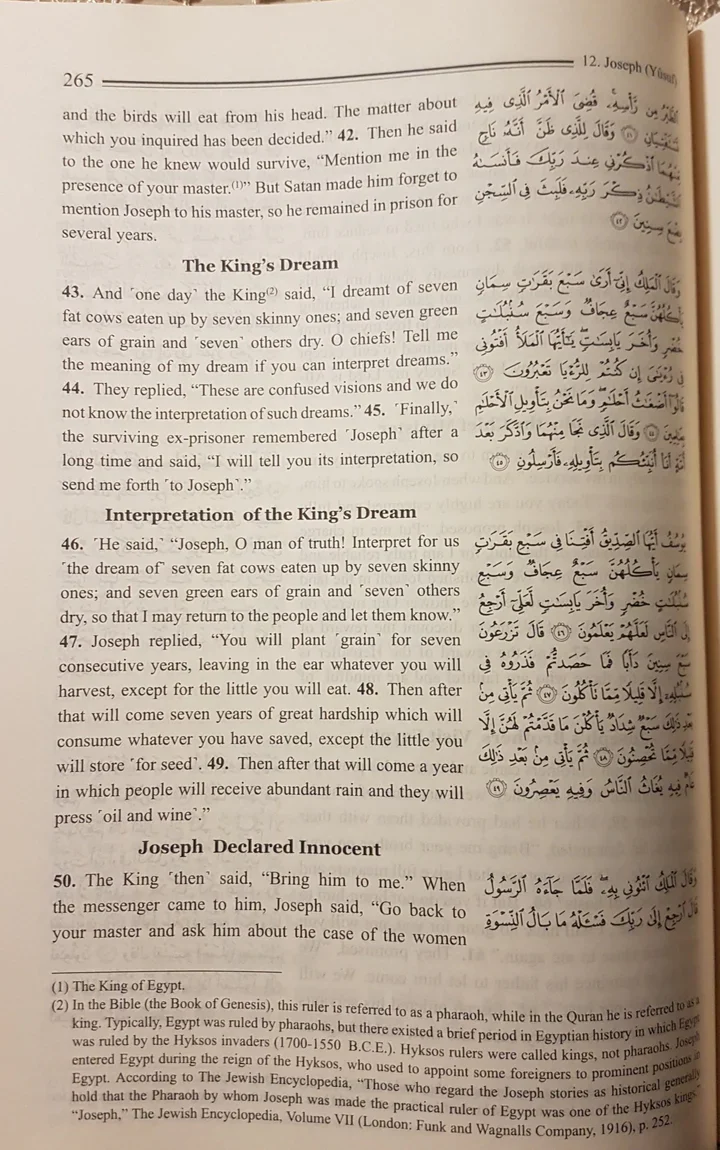 265
12. Joseph (Yûsuf)
and the birds will eat from his head. The matter about
which you inquired has been decided.” 42. Then he said
to the one he knew would survive, “Mention me in the
presence of your master.(1)” But Satan made him forget to
mention Joseph to his master, so he remained in prison for
several years.
The King’s Dream
43. And ˹one day˺ the King(2) said, “I dreamt of seven
fat cows eaten up by seven skinny ones; and seven green
ears of grain and ˹seven˺ others dry. O chiefs! Tell me
the meaning of my dream if you can interpret dreams.”
44. They replied, “These are confused visions and we do
not know the interpretation of such dreams.” 45. ˹Finally,˺
the surviving ex-prisoner remembered ˹Joseph˺ after a
long time and said, “I will tell you its interpretation, so
send me forth ˹to Joseph˺.”
Interpretation of the King’s Dream
46. ˹He said,˺ “Joseph, O man of truth! Interpret for us
˹the dream of˺ seven fat cows eaten up by seven skinny
ones; and seven green ears of grain and ˹seven˺ others
dry, so that I may return to the people and let them know.”
47. Joseph replied, “You will plant ˹grain˺ for seven
consecutive years, leaving in the ear whatever you will
harvest, except for the little you will eat. 48. Then after
that will come seven years of great hardship which will
consume whatever you have saved, except the little you
will store ˹for seed˺. 49. Then after that will come a year
in which people will receive abundant rain and they will
press ˹oil and wine˺.”
Joseph Declared Innocent
50. The King ˹then˺ said, “Bring him to me.” When
the messenger came to him, Joseph said, “Go back to
your master and ask him about the case of the women
ٱلطَّيْرُ مِن رَّأْسِهِۦ ۚ قُضِىَ ٱلْأَمْرُ ٱلَّذِى فِيهِ
تَسْتَفْتِيَانِ ٤١ وَقَالَ لِلَّذِى ظَنَّ أَنَّهُۥ نَاجٍ
مِّنْهُمَا ٱذْكُرْنِى عِندَ رَبِّكَ فَأَنسَىٰهُ
ٱلشَّيْطَـٰنُ ذِكْرَ رَبِّهِۦ فَلَبِثَ فِى ٱلسِّجْنِ
بِضْعَ سِنِينَ ٤٢
وَقَالَ ٱلْمَلِكُ إِنِّىٓ أَرَىٰ سَبْعَ بَقَرَٰتٍ سِمَانٍ
يَأْكُلُهُنَّ سَبْعٌ عِجَافٌ وَسَبْعَ سُنۢبُلَـٰتٍ
خُضْرٍ وَأُخَرَ يَابِسَـٰتٍ ۖ يَـٰٓأَيُّهَا ٱلْمَلَأُ أَفْتُونِى
فِى رُءْيَـٰىَ إِن كُنتُمْ لِلرُّءْيَا تَعْبُرُونَ ٤٣
قَالُوٓا۟ أَضْغَـٰثُ أَحْلَـٰمٍ ۖ وَمَا نَحْنُ بِتَأْوِيلِ ٱلْأَحْلَـٰمِ
بِعَـٰلِمِينَ ٤٤ وَقَالَ ٱلَّذِى نَجَا مِنْهُمَا وَٱدَّكَرَ بَعْدَ
أُمَّةٍ أَنَا۠ أُنَبِّئُكُم بِتَأْوِيلِهِۦ فَأَرْسِلُونِ ٤٥
يُوسُفُ أَيُّهَا ٱلصِّدِّيقُ أَفْتِنَا فِى سَبْعِ بَقَرَٰتٍ
سِمَانٍ يَأْكُلُهُنَّ سَبْعٌ عِجَافٌ وَسَبْعِ
سُنۢبُلَـٰتٍ خُضْرٍ وَأُخَرَ يَابِسَـٰتٍ لَّعَلِّىٓ أَرْجِعُ
إِلَى ٱلنَّاسِ لَعَلَّهُمْ يَعْلَمُونَ ٤٦ قَالَ تَزْرَعُونَ
سَبْعَ سِنِينَ دَأَبًا فَمَا حَصَدتُّمْ فَذَرُوهُ فِى
سُنۢبُلِهِۦٓ إِلَّا قَلِيلًا مِّمَّا تَأْكُلُونَ ٤٧ ثُمَّ يَأْتِى مِنۢ
بَعْدِ ذَٰلِكَ سَبْعٌ شِدَادٌ يَأْكُلْنَ مَا قَدَّمْتُمْ لَهُنَّ إِلَّا
قَلِيلًا مِّمَّا تُحْصِنُونَ ٤٨ ثُمَّ يَأْتِى مِنۢ بَعْدِ ذَٰلِكَ
عَامٌ فِيهِ يُغَاثُ ٱلنَّاسُ وَفِيهِ يَعْصِرُونَ ٤٩
وَقَالَ ٱلْمَلِكُ ٱئْتُونِى بِهِۦ ۖ فَلَمَّا جَآءَهُ ٱلرَّسُولُ
قَالَ ٱرْجِعْ إِلَىٰ رَبِّكَ فَسْـَٔلْهُ مَا بَالُ ٱلنِّسْوَةِ
(1) The King of Egypt.
(2) In the Bible (the Book of Genesis), this ruler is referred to as a pharaoh, while in the Quran he is referred to as a
king. Typically, Egypt was ruled by pharaohs, but there existed a brief period in Egyptian history in which Egypt
was ruled by the Hyksos invaders (1700-1550 B.C.E.). Hyksos rulers were called kings, not pharaohs. Joseph
entered Egypt during the reign of the Hyksos, who used to appoint some foreigners to prominent positions in
Egypt. According to The Jewish Encyclopedia, “Those who regard the Joseph stories as historical generally
hold that the Pharaoh by whom Joseph was made the practical ruler of Egypt was one of the Hyksos kings.”
“Joseph,” The Jewish Encyclopedia, Volume VII (London: Funk and Wagnalls Company, 1916), p. 252.